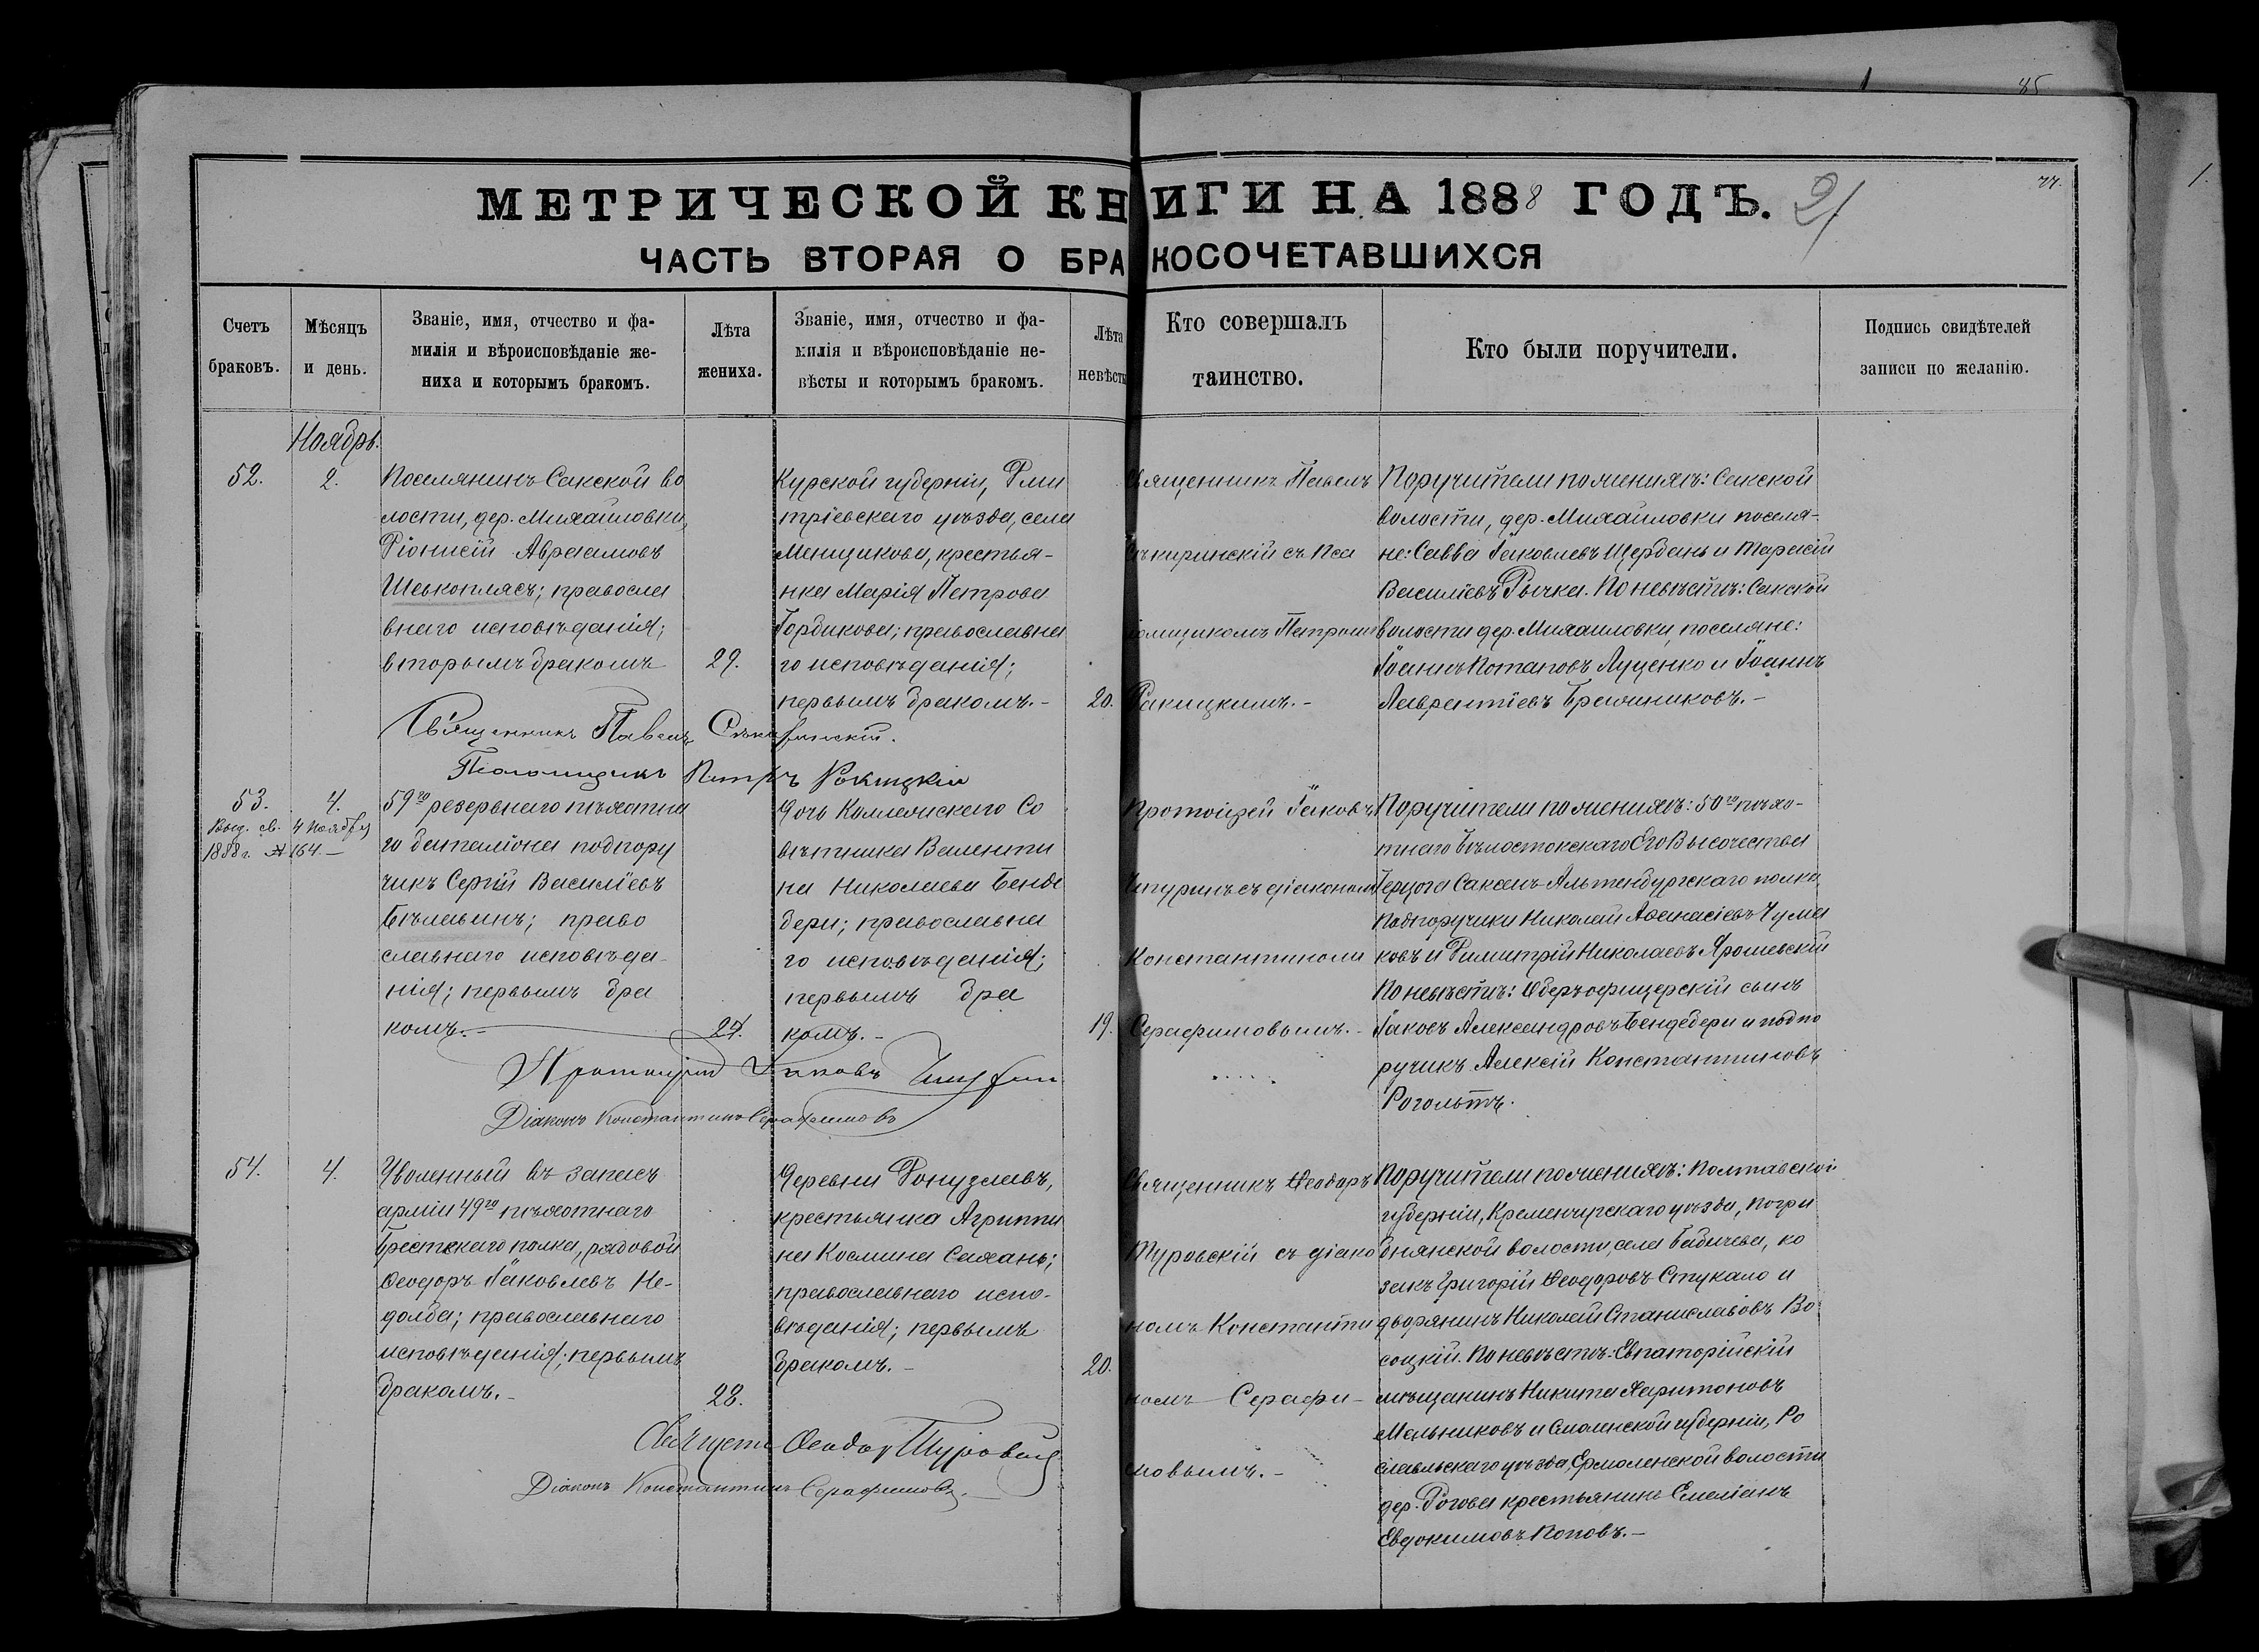 85
МЕТРИЧЕСКОЙ КНИГИ НА 1888 ГОДЪ. 21
ЧАСТЬ ВТОРАЯ О БРАКОСОЧЕТАВШИХСЯ
Счетъ браковъ.
Мѣсяцъ и день.
Званіе, имя, отчество и фа-
милія и вѣроисповѣданіе же-
ниха и которымъ бракомъ.
Лѣта жениха.
Званіе, имя, отчество и фа-
милія и вѣроисповѣданіе не-
вѣсты и которымъ бракомъ.
Лѣта невѣсты
Кто совершалъ
таинство.
Кто были поручители.
Подпись свидѣтелей
записи по желанію.
Ноябрь.
52.
2.
Поселянинъ Сакской во
лости, дер. Михайловки,
Діонисій Авраамовъ
Шевкоплясъ; правосла
внаго исповѣданія;
вторымъ бракомъ
29.
Курской губерніи, Дми
тріевскаго уѣзда, села
Меньщикова, крестья-
нка Марія Петрова
Гордикова; православна
го исповѣданія;
первымъ бракомъ.-
20.
Священникъ Павелъ
Сѣкиринскій съ Пса
ломщикомъ Петромъ
Ракицкимъ.-
Поручители по женихѣ: Сакской
волости, дер. Михайловки поселя-
не: Савва Іаковлевъ Щербань и Тарасій
Василіевъ Рычка. По невѣстѣ: Сакской
волости дер. Михаиловки, поселяне:
Іоаннъ Потаповъ Луценко и Іоаннъ
Лаврентіевъ Бражниковъ.-
Священникъ Павелъ Сѣкиринскій.
Псаломщикъ Петръ Ракицкій
53.
4.
Выд. св. 4 Ноября
1888 г. № 164.-
59го резервнаго пѣхотна
го баталіона подпору
чикъ Сергій Василіевъ
Бѣлавинъ; право
славнаго исповѣда-
нія; первымъ бра
комъ.-
24.
Дочь Коллежскаго Со
вѣтника Валенти
на Николаева Бенде
бери; православна
го исповѣданія;
первымъ бра
комъ.-
19.
Протоіерей Іаковъ
Чепуринъ съ діакономъ
Константиномъ
Серафимовымъ.-
Поручители по женихѣ: 50го пѣхо-
тнаго Бѣлостокскаго Его Высочества
Герцога Саксенъ-Альтенбургскаго полка
Подпоручики Николай Аѳанасіевъ Чума
ковъ и Димитрій Николаевъ Ярошевскій
По невѣстѣ: Оберъ-офицерскій сынъ
Іаковъ Александровъ Бендебери и подпо
ручикъ Алексій Константиновъ
Рогольтъ.
Протоіерей Іаковъ Чепуринъ
Діаконъ Константинъ Серафимовъ
54.
4.
Уволенный въ запасъ
арміи 49го пѣхотнаго
Брестскаго полка, рядовой
Ѳеодоръ Іаковлевъ Не-
долба; православнаго
исповѣданія; первымъ
бракомъ.-
28.
Деревни Донузлавъ,
крестьянка Агриппи
на Космина Сахань;
православнаго испо-
вѣданія; первымъ
бракомъ.-
20.
Священникъ Ѳеодоръ
Туровскій съ діако
номъ Константи
номъ Серафи-
мовымъ.-
Поручители по женихѣ: Полтавской
губерніи, Кременчугскаго уѣзда, Погри
бнянской волости, села Бабичева, ко
закъ Григорій Ѳеодоровъ Стукало и
дворянинъ Николай Станиславовъ Во
соцкій. По невѣстѣ: Евпаторійскій
мѣщанинъ Никита Харитоновъ
Мельниковъ и Смоленской губерніи, Ро
славльскаго уѣзда, Ермоленской волости
дер. Рогова крестьянинъ Емеліанъ
Евдокимовъ Поповъ.-
Священникъ Ѳеодоръ Туровскій
Діаконъ Константинъ Серафимовъ.